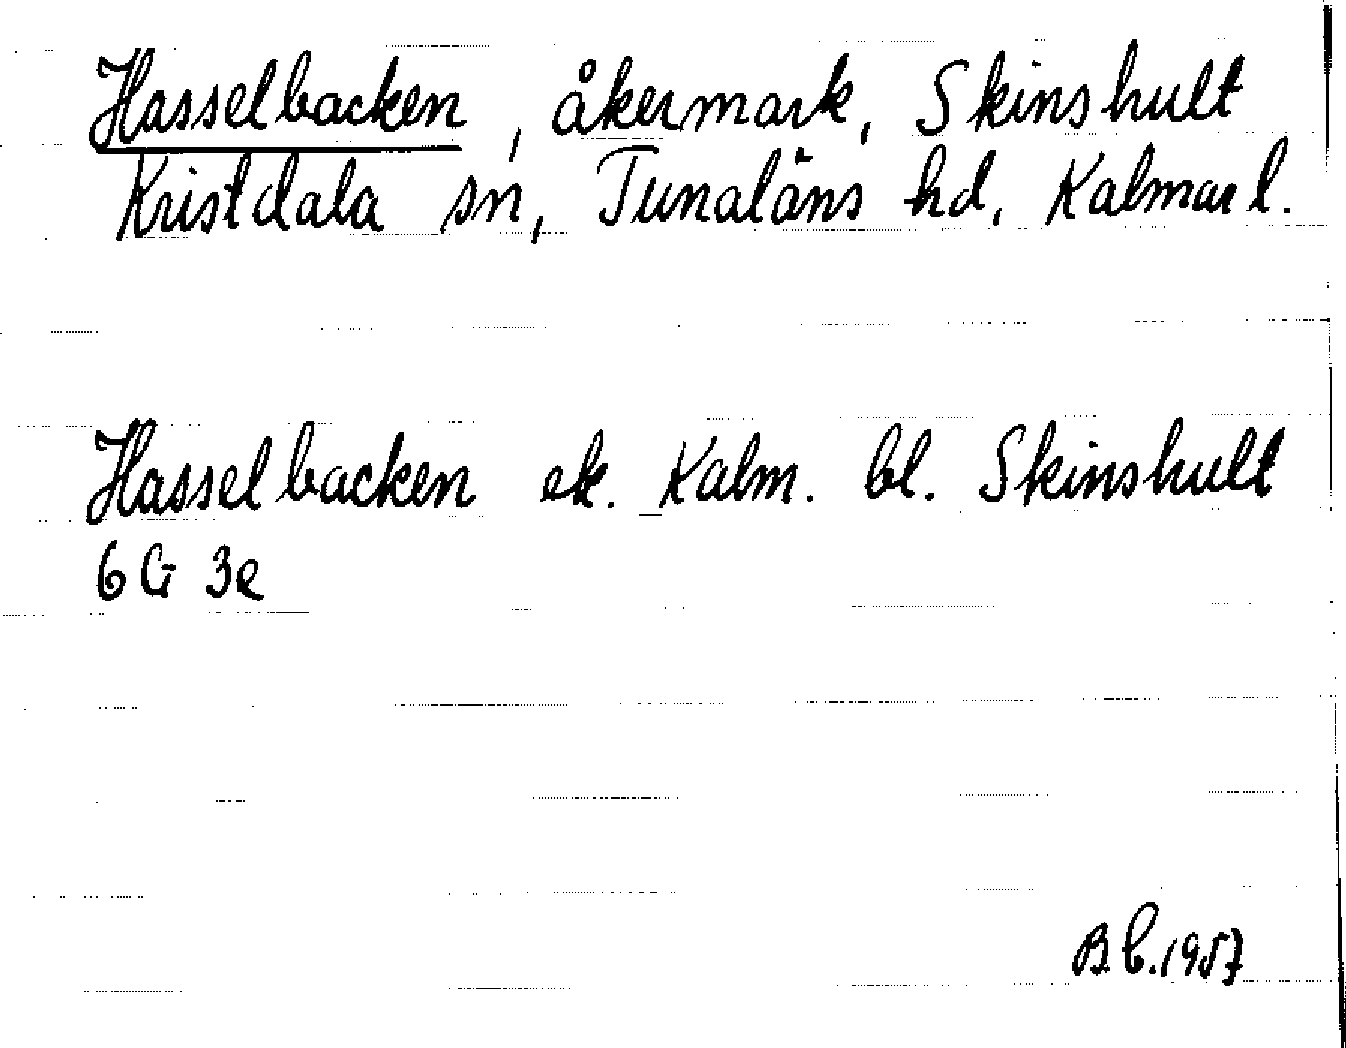 Hasselbacken, åkermark, Skinshult
Kristdala sn, Tunaläns hd, Kalmar l.
Hasselbacken ek. Kalm. bl. Skinshult
6G 3e
B.C. 1957